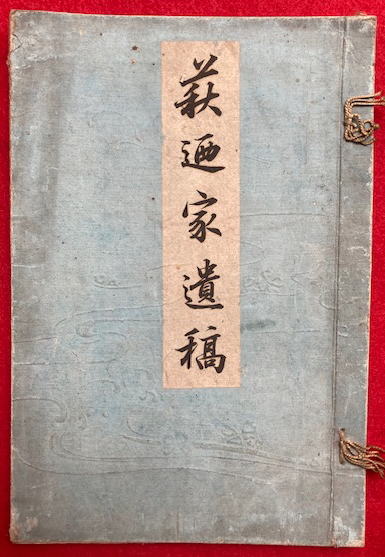 萩廼家遺稿